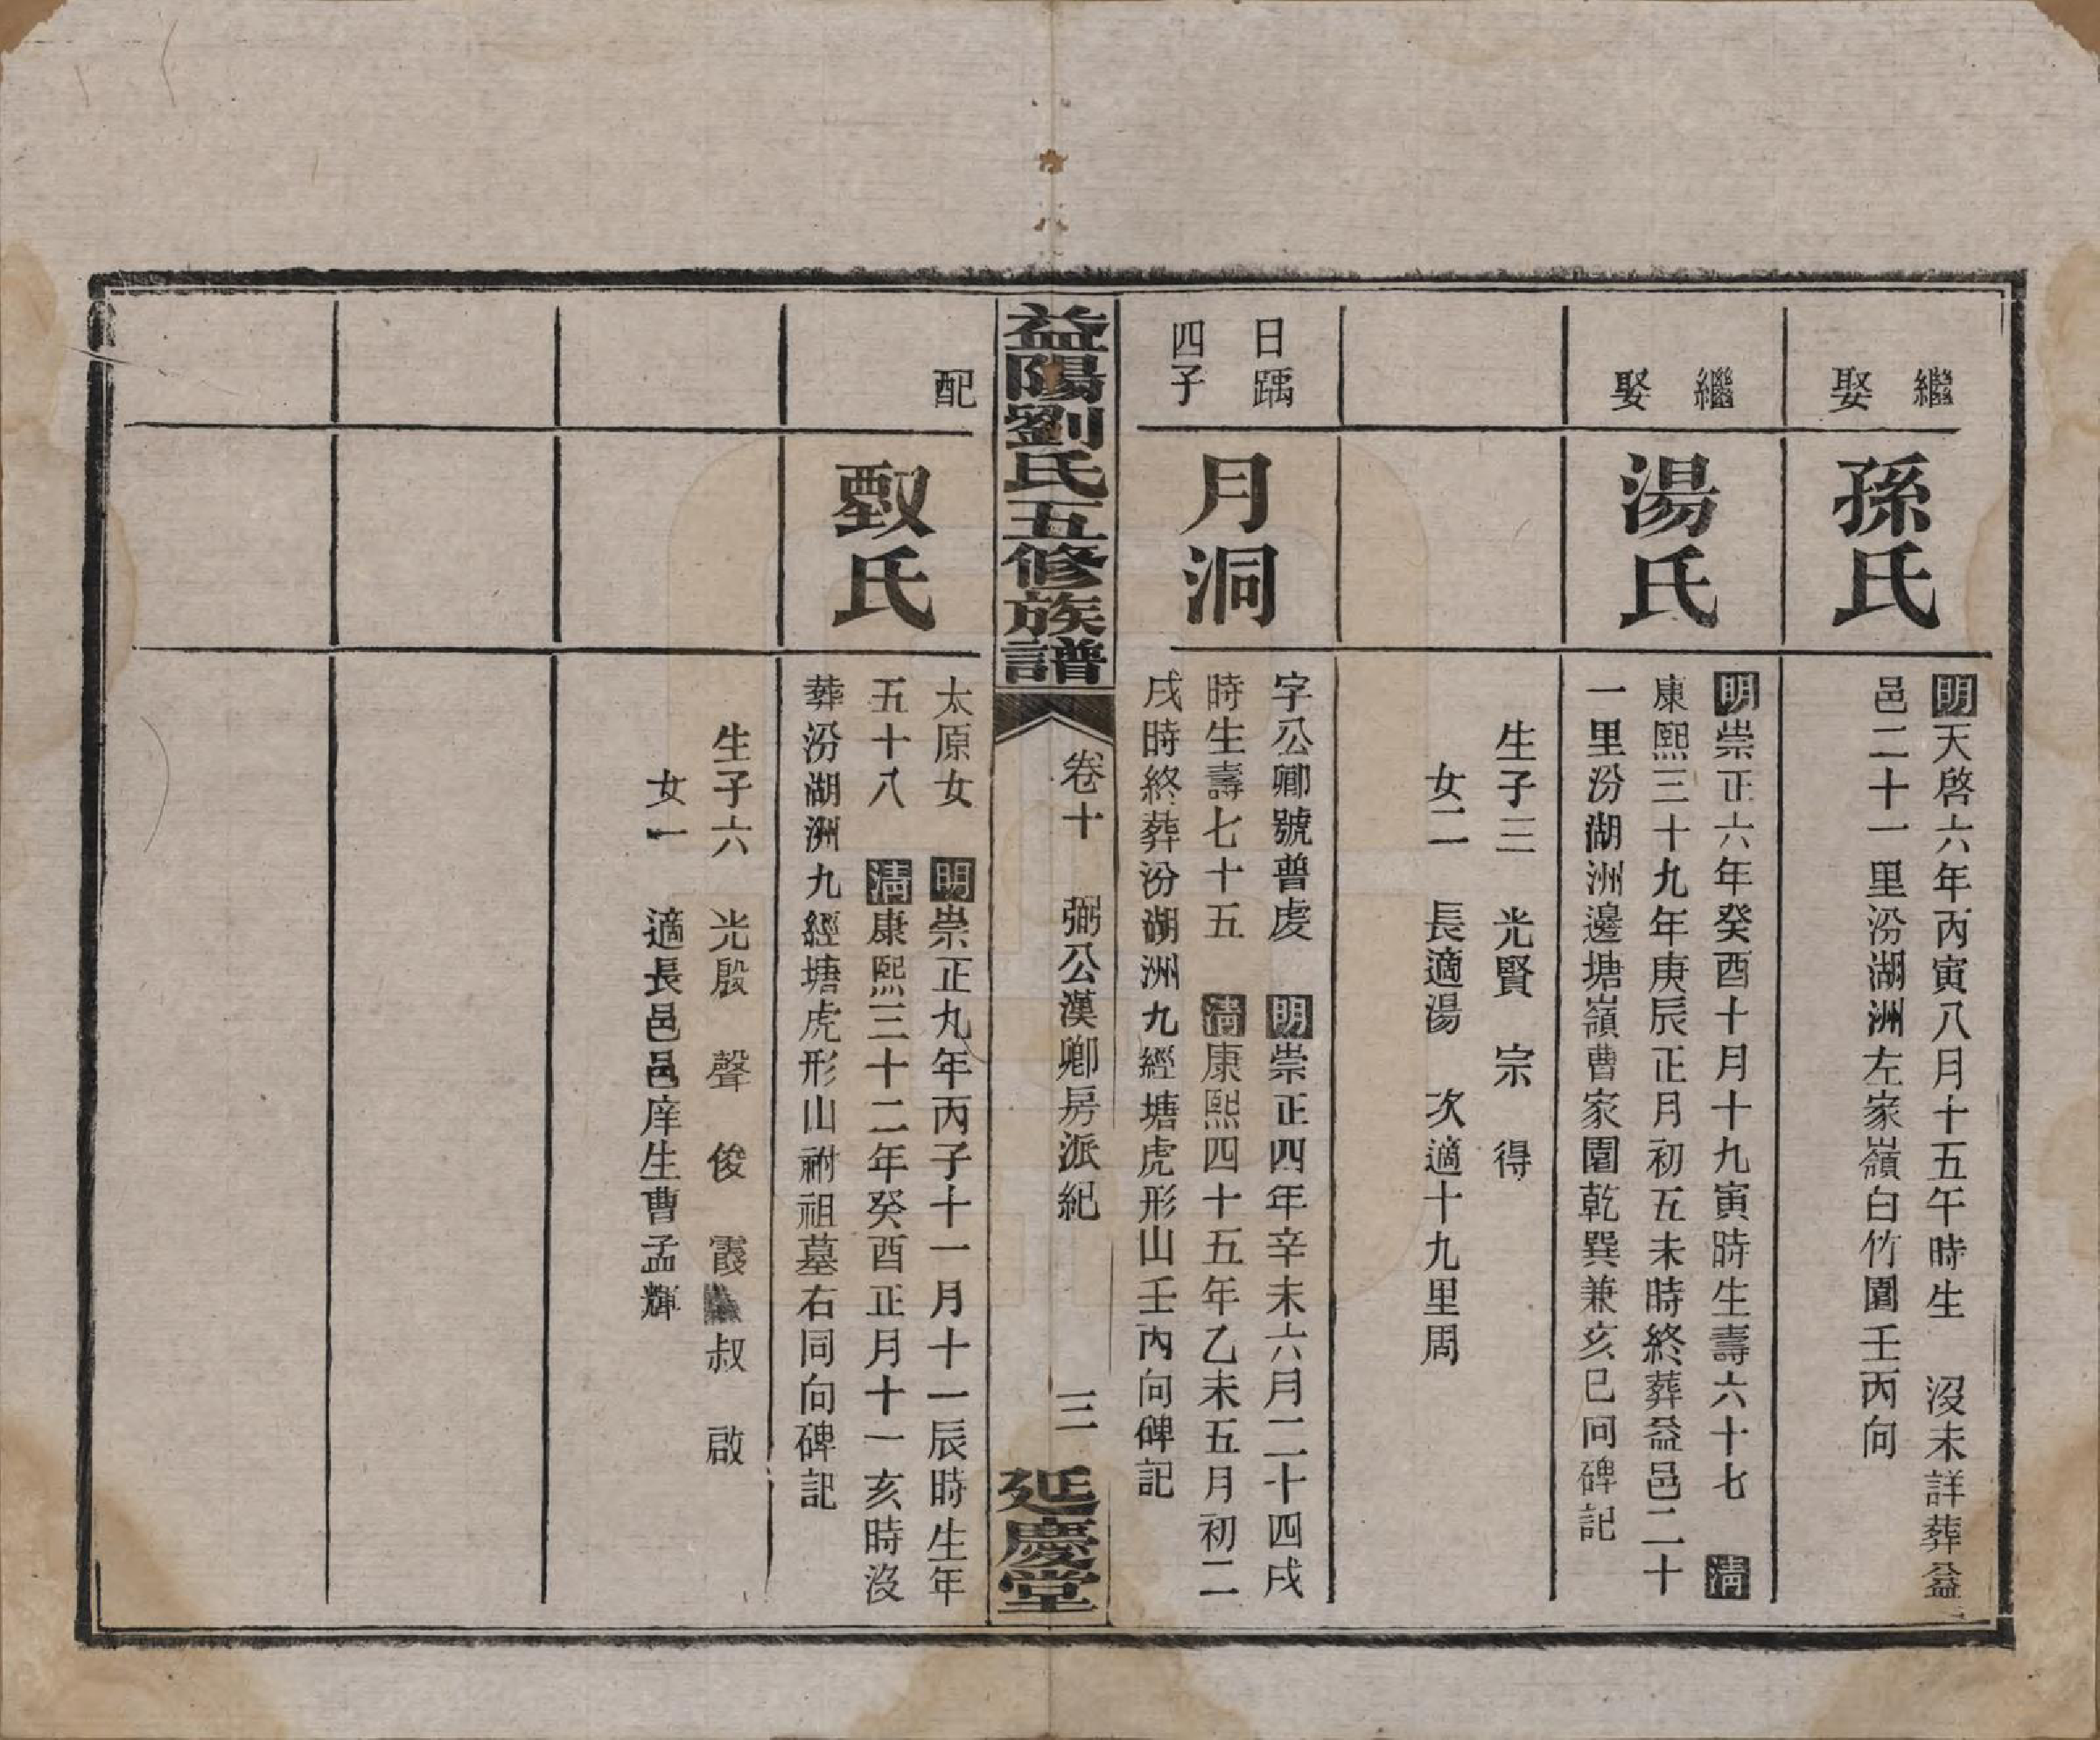 繼娶
孫氏
明天啓六年丙寅八月十五午時生　沒未詳葬益
邑二十一里汾湖洲左家嶺白竹園壬丙向
繼娶
湯氏
明崇正六年癸酉十月十九寅時生壽六十七　清
康熙三十九年庚辰正月初五未時終葬益邑二十
一里汾湖洲邊塘嶺曹家園乾巽兼亥巳向碑記
生子三　光賢　宗　得
女二　長適湯　次適十九里周
日踽
四子
月洞
字公卿號普虔　明崇正四年辛未六月二十四戌
時生壽七十五　清康熙四十五年乙未五月初二
戌時終葬汾湖洲九經塘虎形山壬丙向碑記
益陽劉氏五修族譜
卷十　弼公漢卿房派紀　三
延慶堂
配
甄氏
太原女　明崇正九年丙子十一月十一辰時生年
五十八　清康熙三十二年癸酉正月十一亥時沒
葬汾湖洲九經塘虎形山祔祖墓右同向碑記
生子六　光殷　聲　俊　霞　叔　啟
女一　適長邑邑庠生曹孟輝